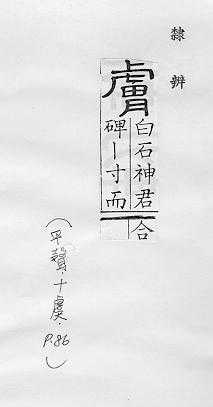 隸辨
膚
白石神君
碑｜寸而
合
(平聲·十虞·P.86)